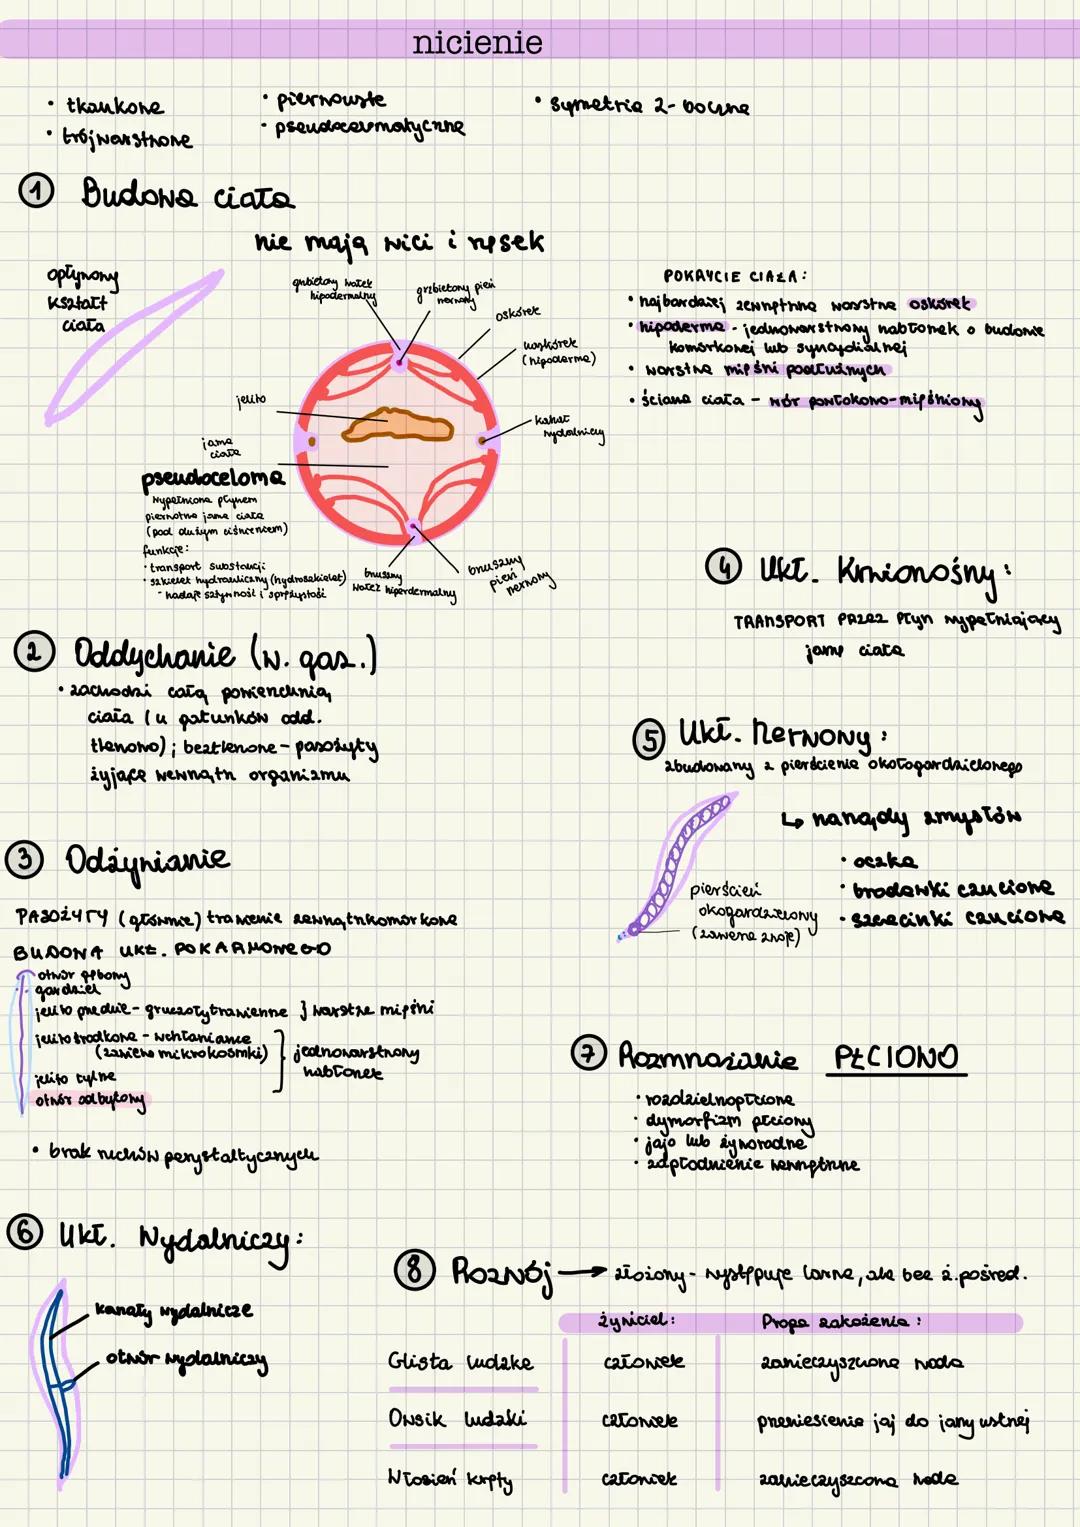 nicienie
• tkankowe
• trójwarstwowe
• pierwouste
• pseudocelomatyczne
• symetria 2-boczna
1 Budowa ciała
nie mają wici i rzęsek
opływowy
kształt
ciała
grzbietowy wałek
hipodermalny
grzbietowy pień
nerwowy
oskórek
naskórek
(hipoderma)
kanał
wydalniczy
jelito
jama
ciała
pseudoceloma
wypełniona płynem
pierwotna jama ciała
(pod dużym ciśnieniem)
funkcje:
• transport substancji
• szkielet hydrauliczny (hydroszkielet)
- nadaje sztywność i sprężystość
brzuszny
wałek hiperdermalny
brzuszny
pień
nerwowy
POKRYCIE CIAŁA:
• najbardziej zewnętrzna warstwa oskórek
• hipoderma - jednowarstwowy nabłonek o budowie
komórkowej lub syncydialnej
• warstwa mięśni podłużnych
• ściana ciała - wór powłokowo-mięśniowy
2 Oddychanie (w. gaz.)
• zachodzi całą powierzchnią
ciała (u gatunków odd.
tlenowo); beztlenowe - pasożyty
żyjące wewnątrz organizmu
4 Ukł. Krwionośny:
TRANSPORT PRZEZ Płyn wypełniający
jamę ciała
5 Ukł. Nerwowy:
zbudowany z pierścienia okołogardzielowego
↳ narządy zmysłów
• oczka
• brodawki czuciowe
• szczecinki czuciowe
pierścień
okogardzielowy
(zawiera zwoje)
3 Odżywianie
PASOŻYTY (głównie) trawienie zewnątrzkomórkowe
BUDOWA UKŁ. POKARMOWEGO
otwór gębowy
gardziel
jelito przednie - gruczoły trawienne } warstwa mięśni
jelito środkowe - wchłanianie
(zawiera mikrokosmki)
jelito tylne
jednowarstwowy
nabłonek
otwór odbytowy
• brak ruchów perystaltycznych
7 Rozmnażanie PŁCIOWO
• rozdzielnopłciowe
• dymorfizm płciowy
• jajo lub żyworodne
• zapłodnienie wewnętrzne
6 Ukł. Wydalniczy:
kanały wydalnicze
otwór wydalniczy
8 Rozwój → złożony - występuje larwa, ale bez ż. pośred.
żywiciel: Droga zakażenia:
Glista ludzka człowiek zanieczyszczona woda
Owsik ludzki człowiek przeniesienie jaj do jamy ustnej
Włosień kręty człowiek zanieczyszczona woda